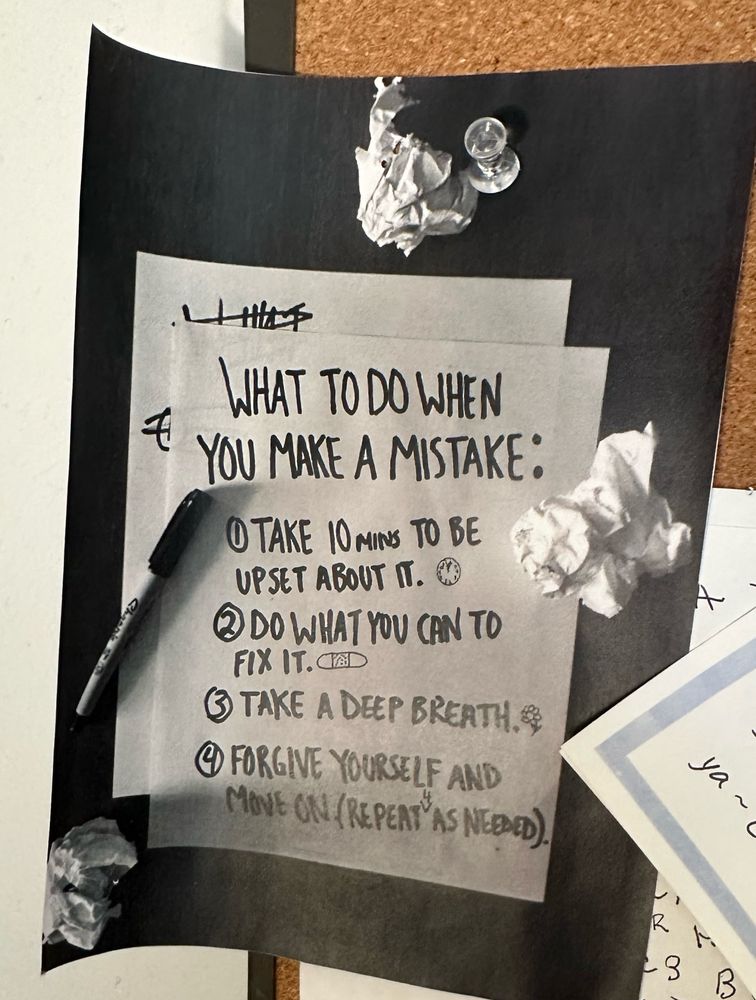 WHAT TO DO WHEN
YOU MAKE A MISTAKE:
① TAKE 10 MINS TO BE
UPSET ABOUT IT.
② DO WHAT YOU CAN TO
FIX IT.
③ TAKE A DEEP BREATH.
④ FORGIVE YOURSELF AND
MOVE ON (REPEAT 4 AS NEEDED).
ya
R
B